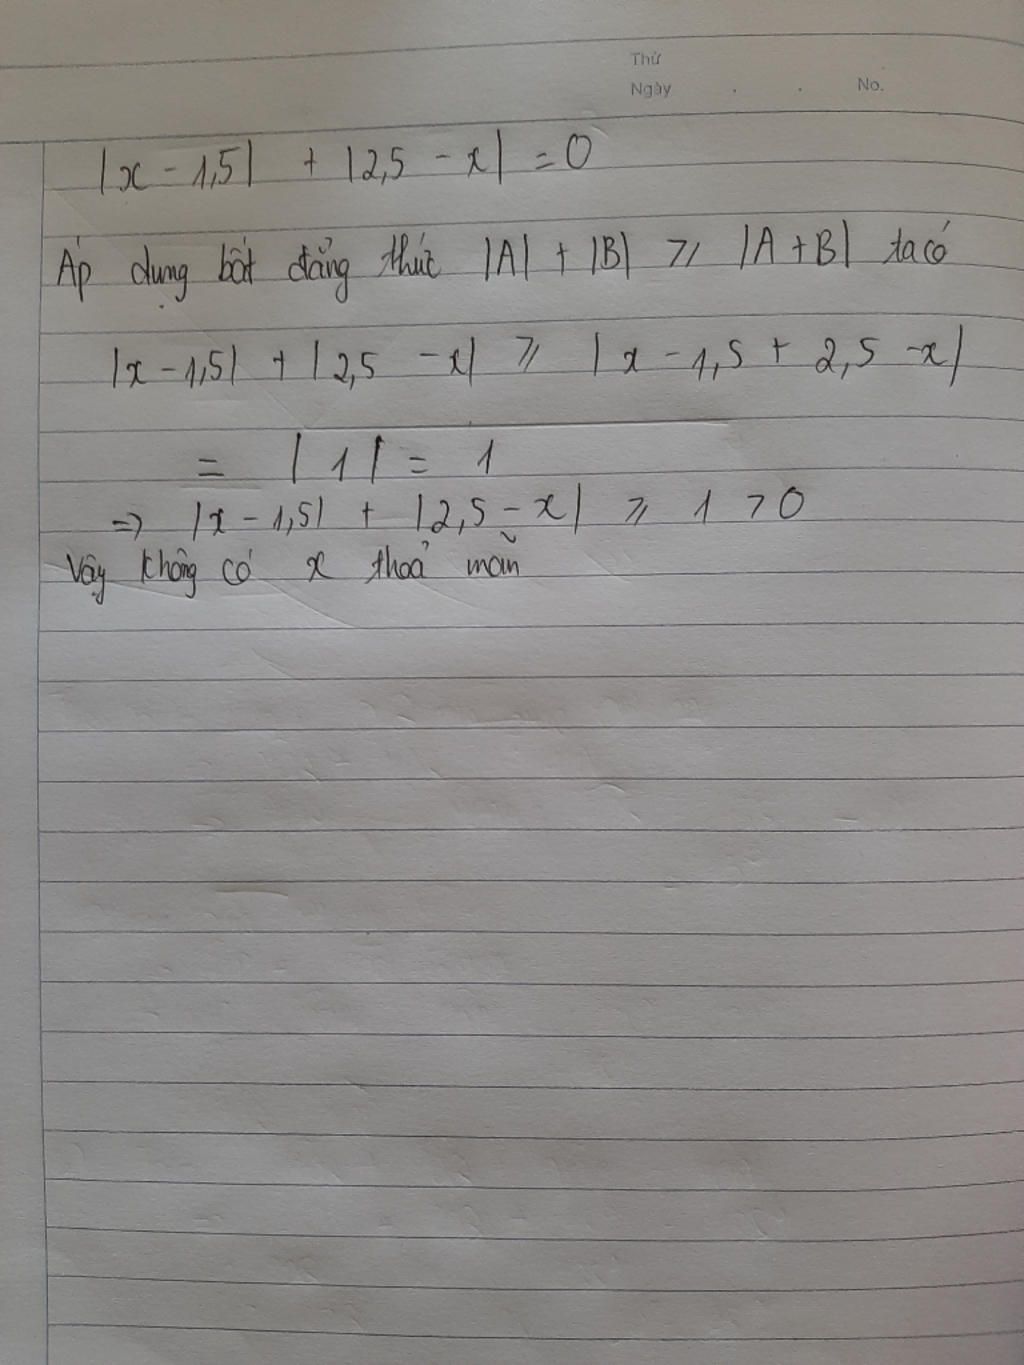 Thứ
Ngày . . No.
|x - 1,5| + |2,5 - x| = 0
Áp dụng bất đẳng thức |A| + |B| ⩾ |A + B| ta có
|x - 1,5| + |2,5 - x| ⩾ |x - 1,5 + 2,5 - x|
= |1| = 1
=> |x - 1,5| + |2,5 - x| ⩾ 1 > 0
Vậy không có x thoả mãn